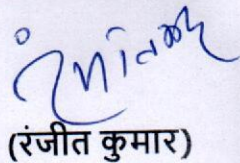 (रंजीत कुमार)